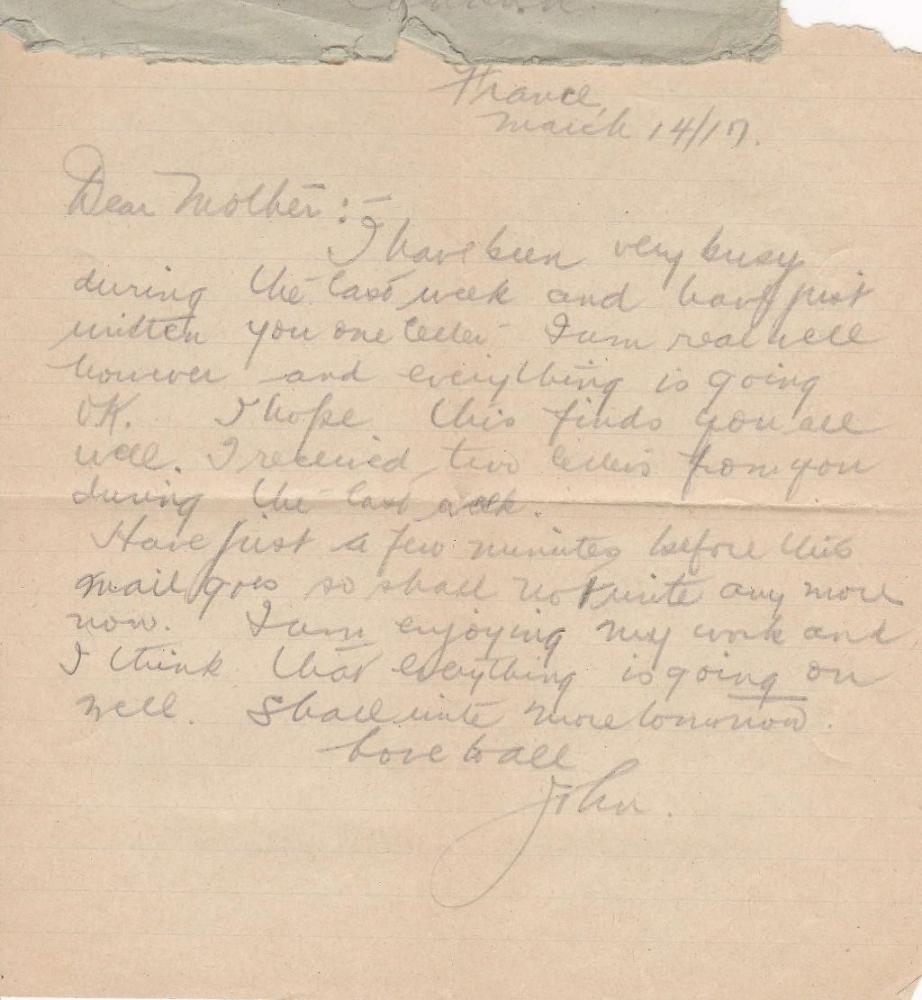 France,
March 14/17.
Dear Mother:-
I have been very busy
during the last week and have just
written you one letter I am real well
however and everything is going
OK. I hope this finds you all
well. I received two letters from you
during the last week.
Have just a few minutes before this
mail goes so shall not write any more
now. I am enjoying my work and
I think that everything is going on
well. Shall write more tomorrow.
Love to all
John.